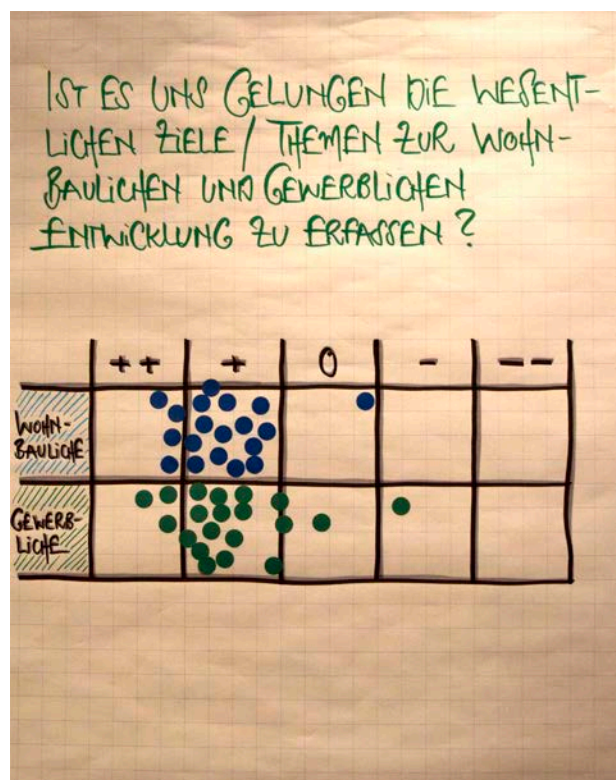 IST ES UNS GELUNGEN DIE WESENT-
LICHEN ZIELE / THEMEN ZUR WOHN-
BAULICHEN UND GEWERBLICHEN
ENTWICKLUNG ZU ERFASSEN ?
++ + 0 - --
WOHN-
BAULICHE
GEWERB-
LICHE